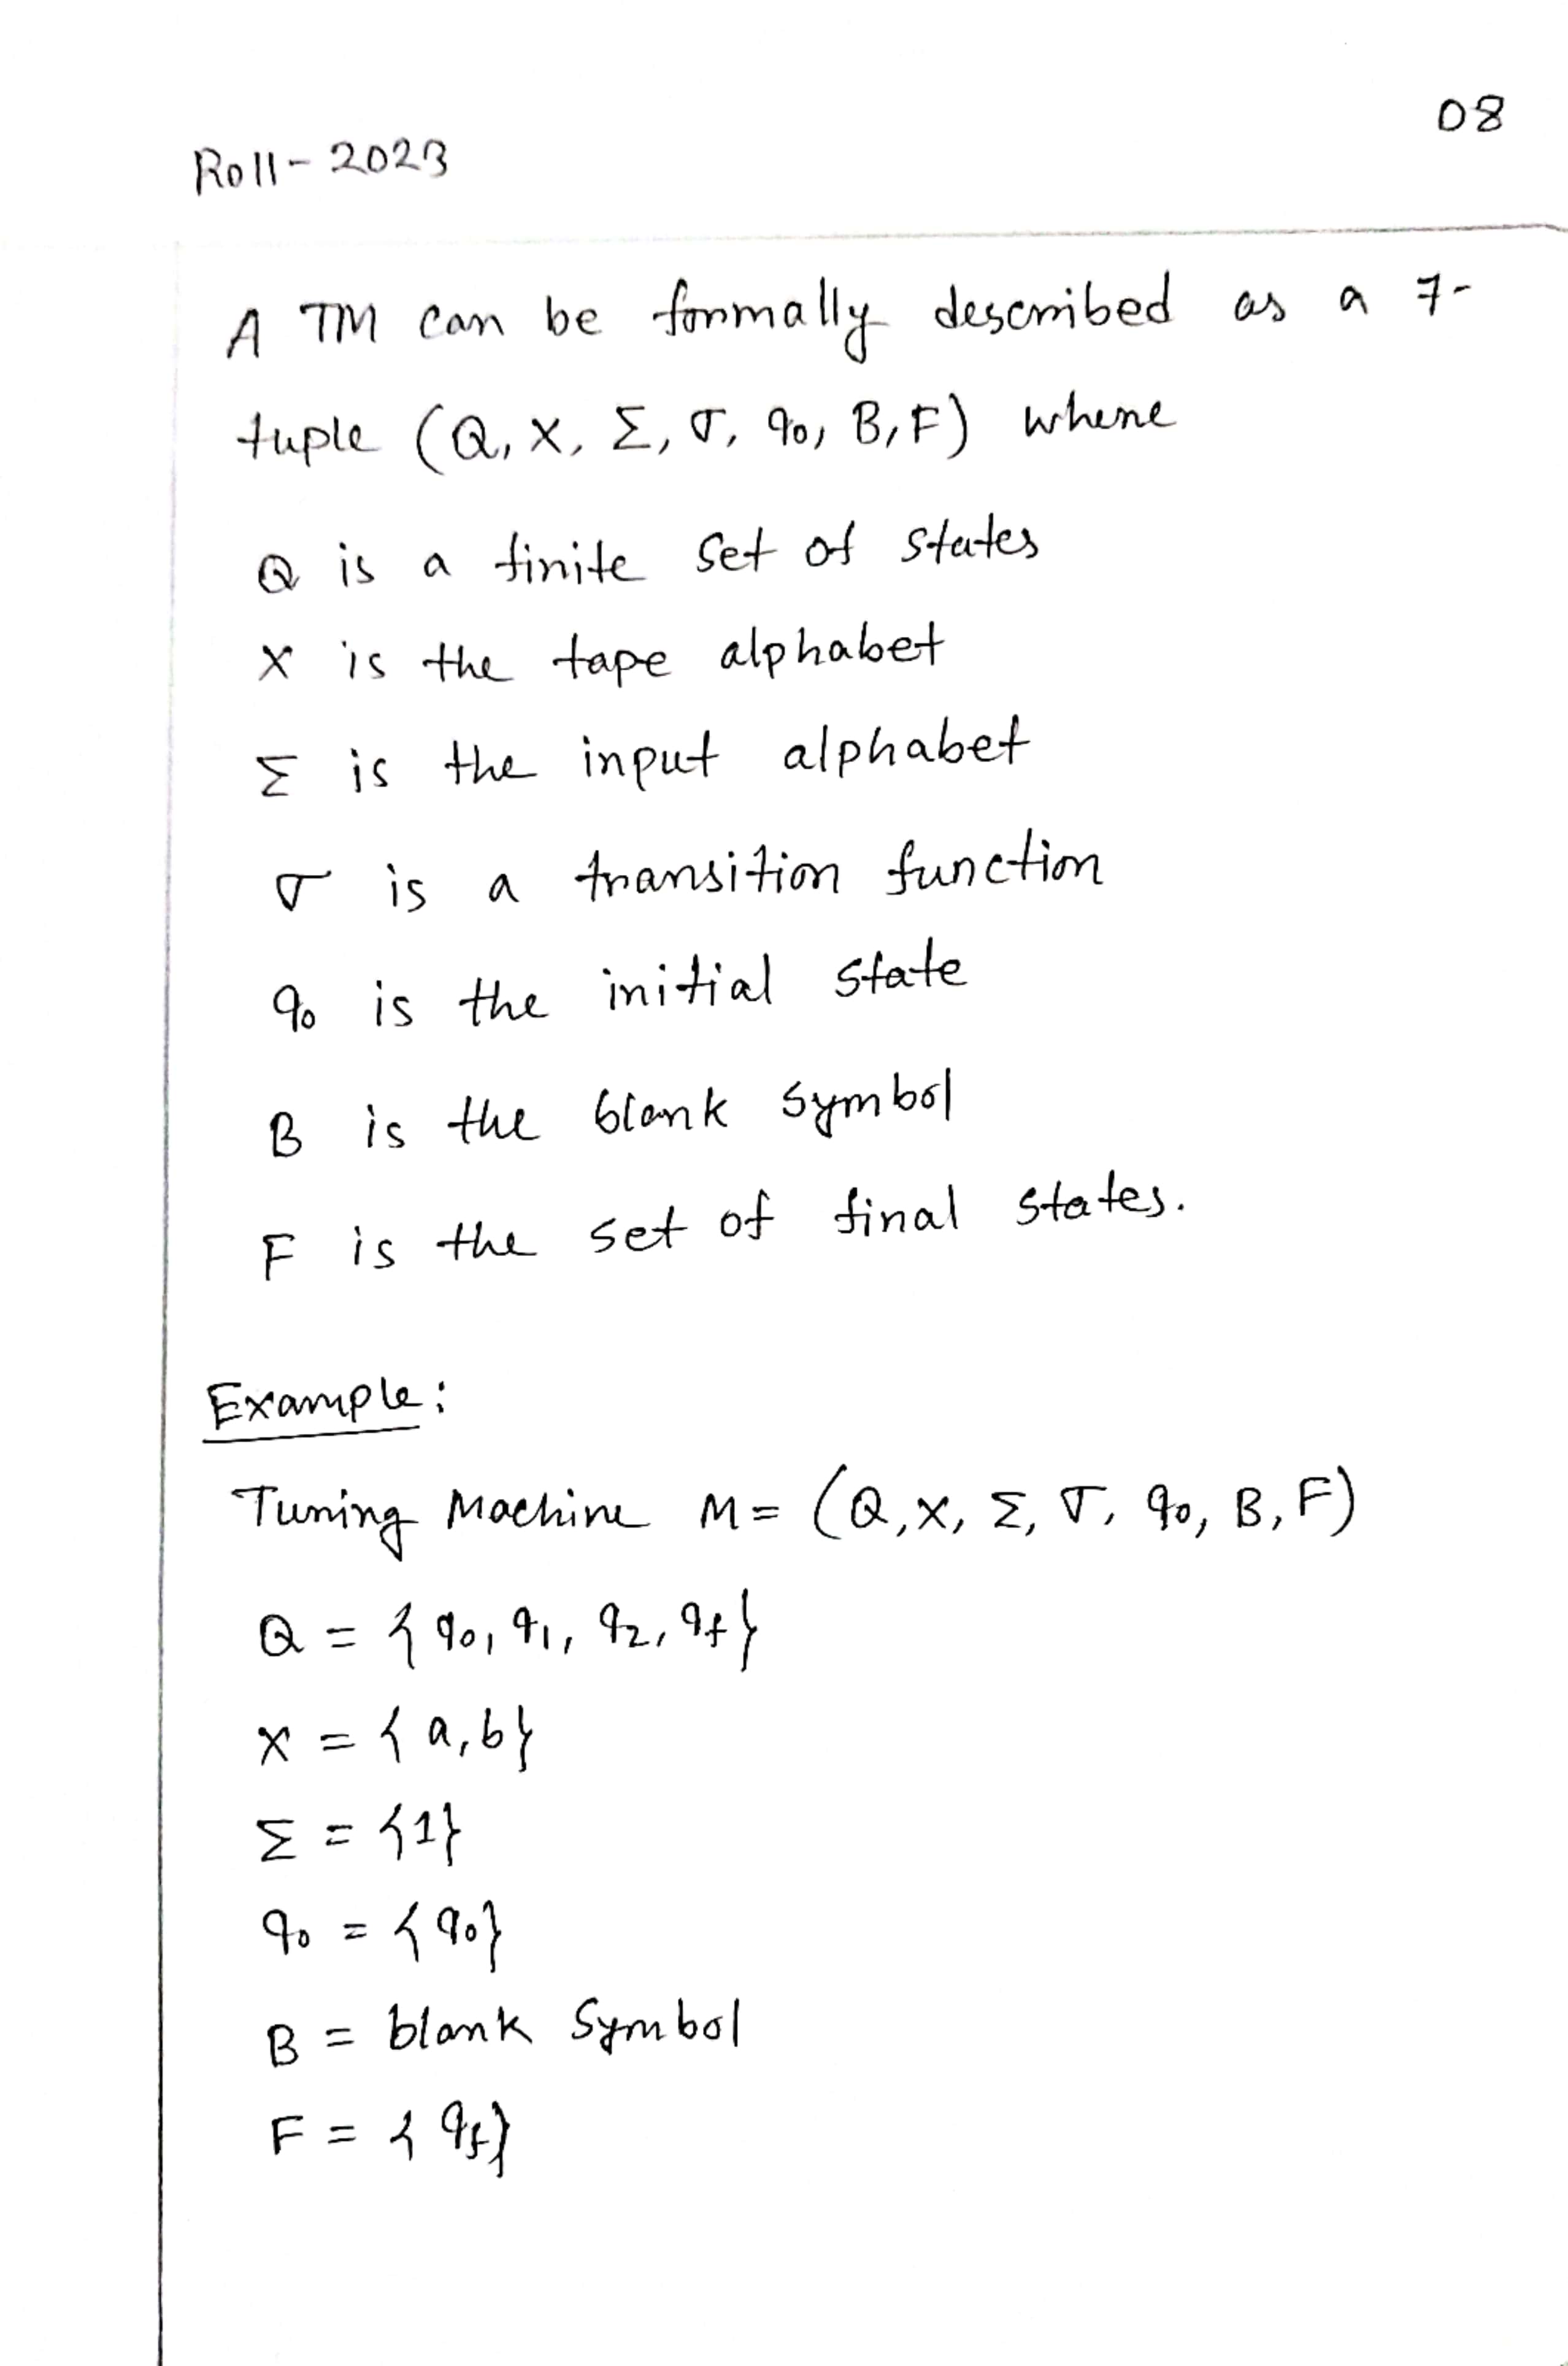 08
Roll-2023
A TM can be formally described as a 7-
tuple (Q, X, Σ, σ, q₀, B, F) where
Q is a finite set of states
X is the tape alphabet
Σ is the input alphabet
σ is a transition function
q₀ is the initial state
B is the blank symbol
F is the set of final states.
Example:
Turing Machine M = (Q, X, Σ, σ, q₀, B, F)
Q = {q₀, q₁, q₂, q_f}
X = {a, b}
Σ = {1}
q₀ = {q₀}
B = blank Symbol
F = {q_f}